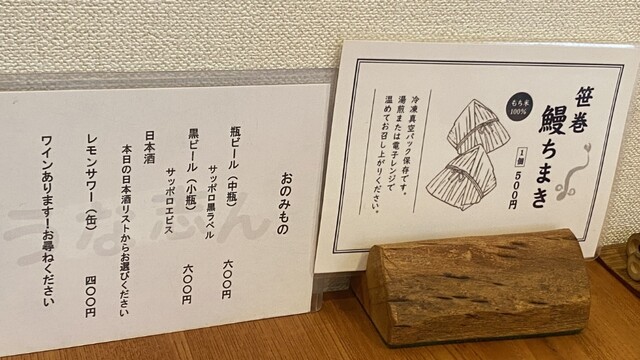 おのみもの
瓶ビール（中瓶）
サッポロ黒ラベル 六〇〇円
黒ビール（小瓶）
サッポロエビス 六〇〇円
日本酒
本日の日本酒リストからお選びください
レモンサワー（缶） 四〇〇円
ワインあります！お尋ねください
笹巻
鰻ちまき
1個 500円
もち米
100%
冷凍真空パック保存です。
湯煎または電子レンジで
温めてお召し上がりください。